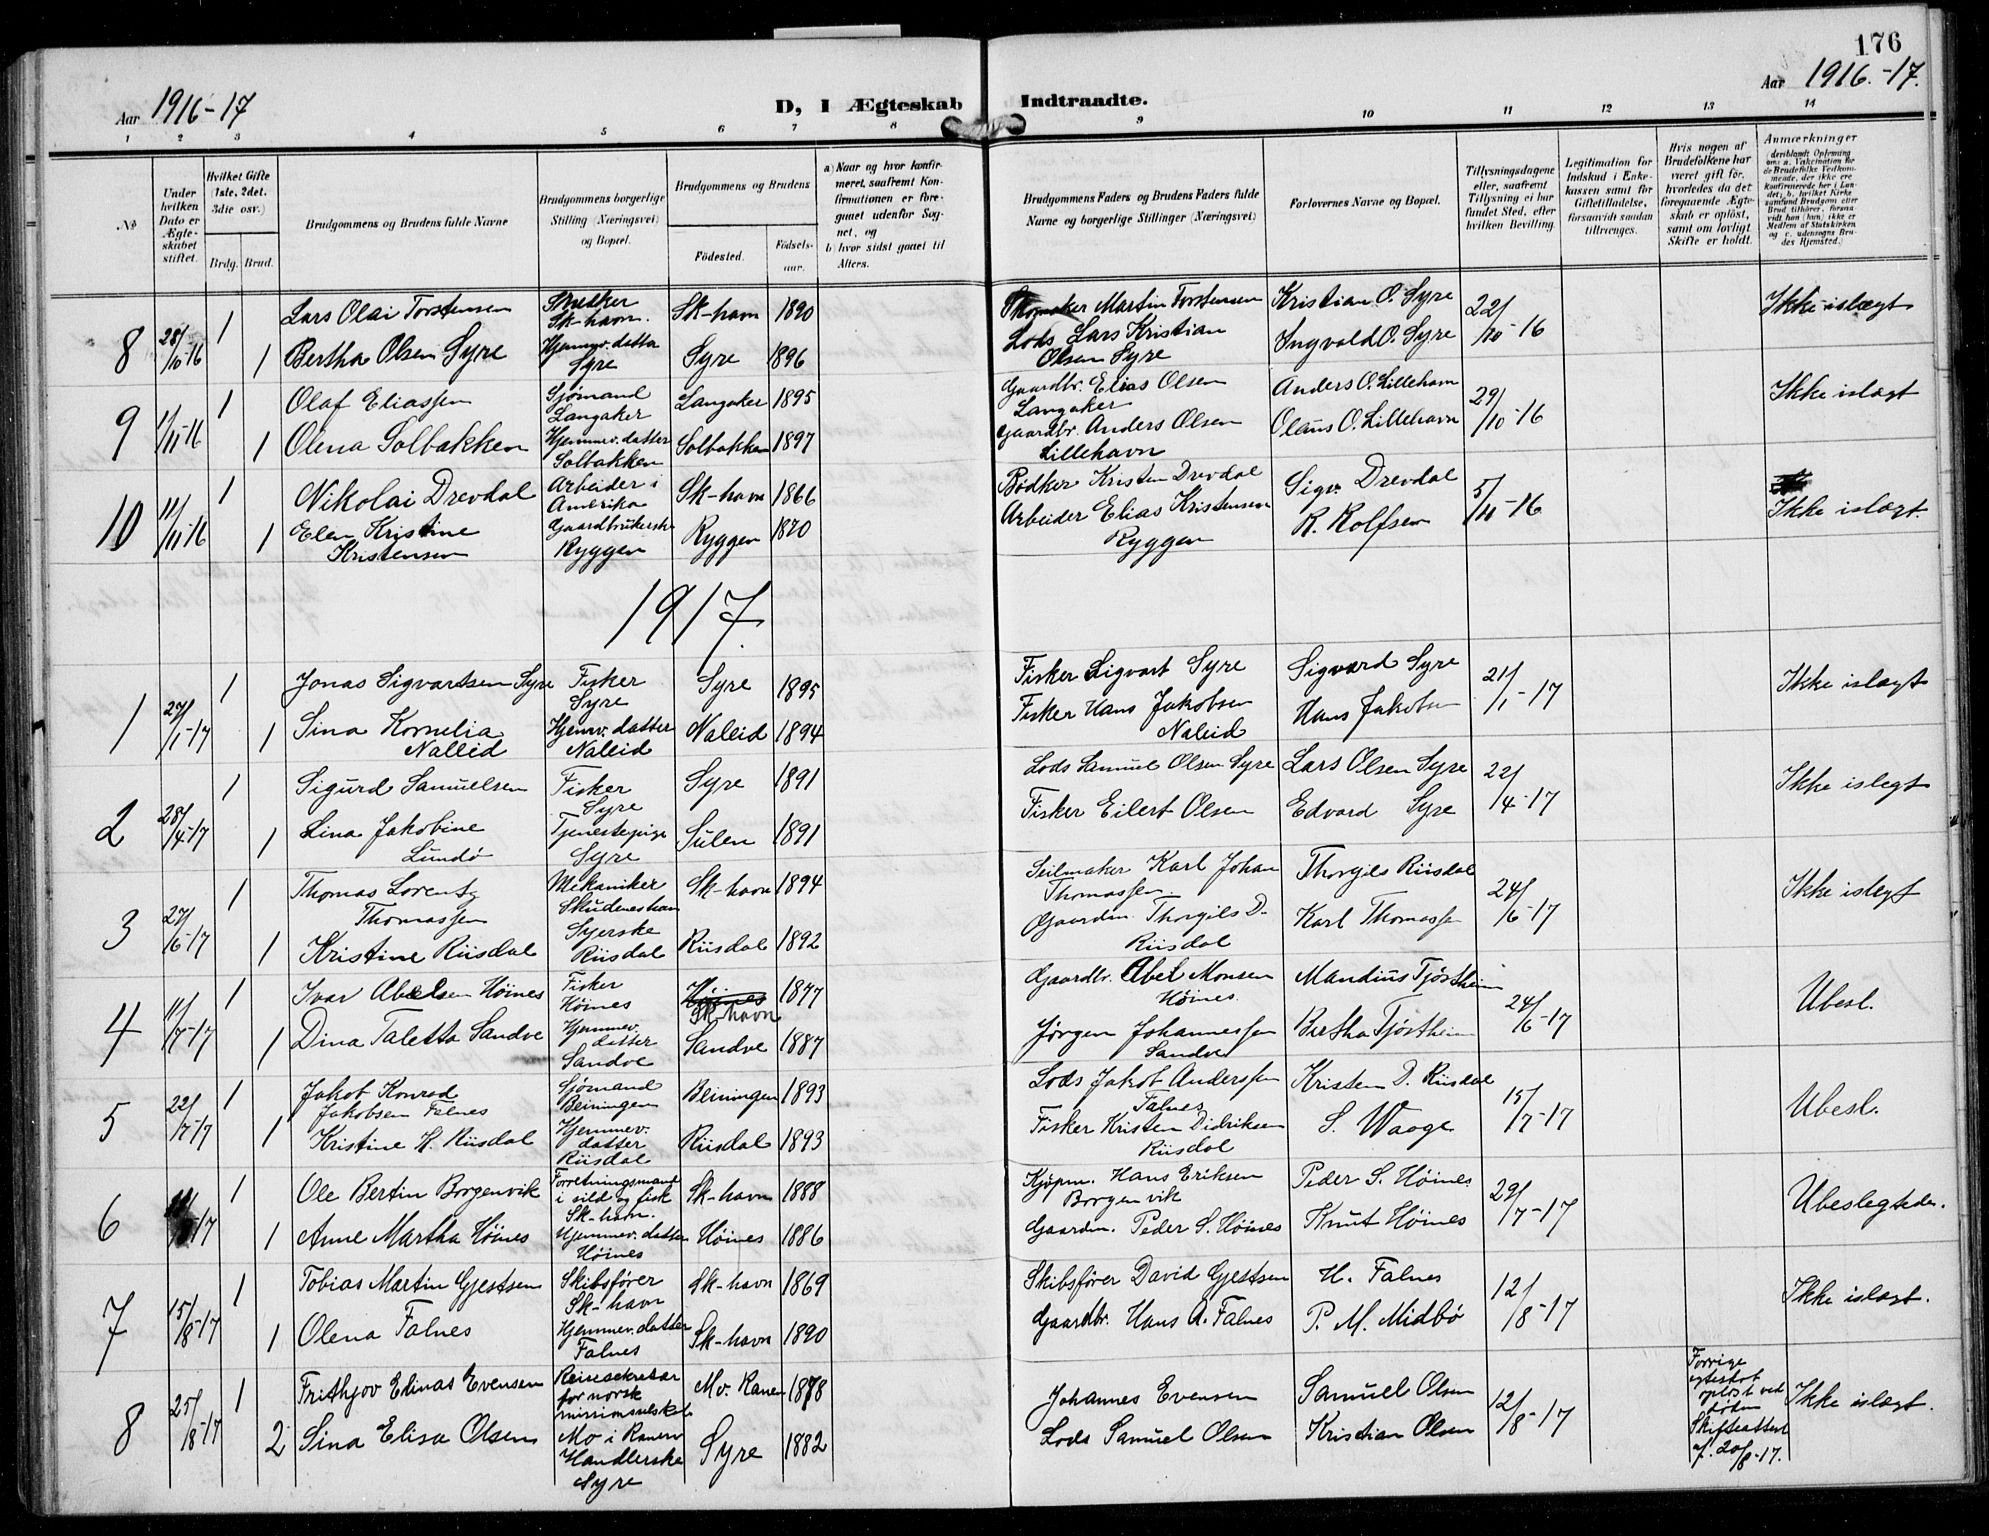 176
Aar 1916-17
D, I Ægteskab Indtraadte.
Aar 1916-17.
1 2 3 4 5 6 7 8 9 10 11 12 13 14
No
Under hvilken Dato er Ægteskabet stiftet.
Hvilket Gifte (1ste, 2det, 3die osv.)
Brdg. Brud.
Brudgommens og Brudens fulde Navne
Brudgommens borgerlige Stilling (Næringsvei) og Bopæl.
Brudgommens og Brudens
Födested.
Födsels-aar.
a) Naar og hvor konfirmeret, saafremt Konfirmationen er foregaaet udenfor Sognet, og
b) hvor sidst gaaet til Alters.
Brudgommens Faders og Brudens Faders fulde Navne og borgerlige Stillinger (Næringsvei)
Forlovernes Navne og Bopæl.
Tillysningsdagene eller, saafremt Tillysning ei har fundet Sted, efter hvilken Bevilling.
Legitimation for Indskud i Enkekassen samt for Giftetilladelse, forsaavidt saadan tiltrænges.
Hvis nogen af Brudefolkene har været gift för, hvorledes da det foregaaende Ægteskab er oplöst, samt om lovligt Skifte er holdt.
Anmærkninger
8 28/10-16 1 Lars Olai Torstensen Snedker Sk-havn. Sk-havn 1890 Martin Torstensen Kristian O. Syre 22/10-16 Ikke islægt
1 Bertha Olsen Syre Hjemmev. datter Syre Syre 1896 Lods Lars Kristian Olsen Syre Ingvald O. Syre
9 11/11-16 1 Olaf Eliassen Sjømand Langaker Langaker 1895 Gaardbr. Elias Olsen Langaker Anders O. Lillehavn 29/10-16 Ikke islægt
1 Olena Solbakken Hjemmev. datter Solbakken Solbakken 1897 Gaardbr. Anders Olsen Lillehavn Olaus O. Lillehavn
10 11/11-16 1 Nikolai Drevdal Arbeider i Amerika Sk-havn 1866 Bødker Kristen Drevdal Sigv. Drevdal 5/11-16 Ikke islægt.
1 Elen Kristine Kristensen Ryggen Ryggen 1870 Arbeider Elias Kristensen Ryggen R. Rolfsen
1917
1 27/1-17 1 Jonas Sigvartsen Syre Fisker Syre Syre 1895 Fisker Sigvart Syre Sigvard Syre 21/1-17 Ikke islægt
1 Sina Kornelia Naleid Hjemv. datter Naleid Naleid 1894 Fisker Hans Jakobsen Naleid Hans Jakobsen
2 28/4-17 1 Sigurd Samuelsen Fisker Syre Syre 1891 Lods Samuel Olsen Syre Lars Olsen Syre 22/4-17 Ikke islegt
1 Lina Jakobine Lundø Tjenestepige Syre Sulen 1891 Fisker Eilert Olsen Edvard Syre
3 27/6-17 1 Thomas Lorentz Thomassen Mekaniker Skudeneshavn Sk-havn 1894 Seilmaker Karl Johan Thomassen Thorgils Riisdal 24/6-17 Ikke islegt
1 Kristine Riisdal Syerske Riisdal Riisdal 1892 Gaardm. Thorgils D. Riisdal Karl Thomassen
4 11/7-17 1 Ivar Abelsen Höines Fisker Höines Höines Sk-havn 1877 Gaardbr. Abel Monsen Höines Mandius Tjøstheim 24/6-17 Ubesl.
1 Dina Taletta Sandve Hjemmev. datter Sandve Sandve 1887 Jørgen Johannessen Sandve Bertha Tjøstheim
5 22/7-17 1 Jakob Konrad Jakobsen Falnes Sjømand Beiningen Beiningen 1893 Lods Jakob Anderssen Falnes Kristen D. Riisdal 15/7-17 Ubesl.
1 Kristine H. Riisdal Hjemmev. datter Riisdal Riisdal 1893 Fisker Kristen Didriksen Riisdal S. Waage
6 1 Ole Bertin Borgenvik Forretningsmand i sild og fisk Sk-havn. Sk-havn 1888 Kjøpm. Hans Eriksen Borgenvik Peder S. Höines 29/7-17 Ubeslegtede.
1 Anne Martha Höines Hjemmev. datter Höines Höines 1886 Gaardm. Peder S. Höines Knut Höines
7 15/8-17 1 Tobias Martin Gjestsen Skibsfører Sk-havn Sk-havn 1869 Skibsfører David Gjestsen H. Falnes 12/8-17 Ikke islægt.
1 Olena Falnes Hjemmev. datter Falnes Sk-havn 1890 Gaardbr. Hans A. Falnes P. M. Midbö
8 25/8-17 1 Frithjov Elinas Evensen Reisesekretær for norsk missionsselskab Mo i Ranen Mo. Ranen 1878 Johannes Evensen Samuel Olsen 12/8-17 Forrige egteskab opløst ved døden Skifteattest af 20/8-17. Ikke islægt.
2 Sina Elisa Olsen Handlerske Syre Syre 1882 Lods Samuel Olsen Kristian Olsen